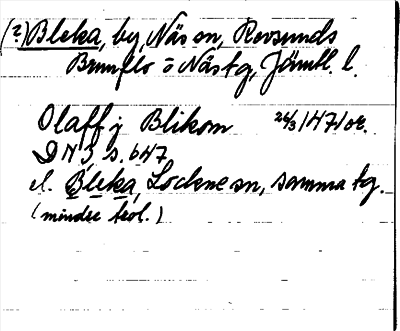 (?) Bleka, by, Näs sn, Revsunds
Brunflo o Näs tg, Jämtl. l.
Olaff j Blikom 26/3 1471 or.
DN 3, s. 647
el. Bleka, Lockne sn, samma tg.
(mindre trol.)